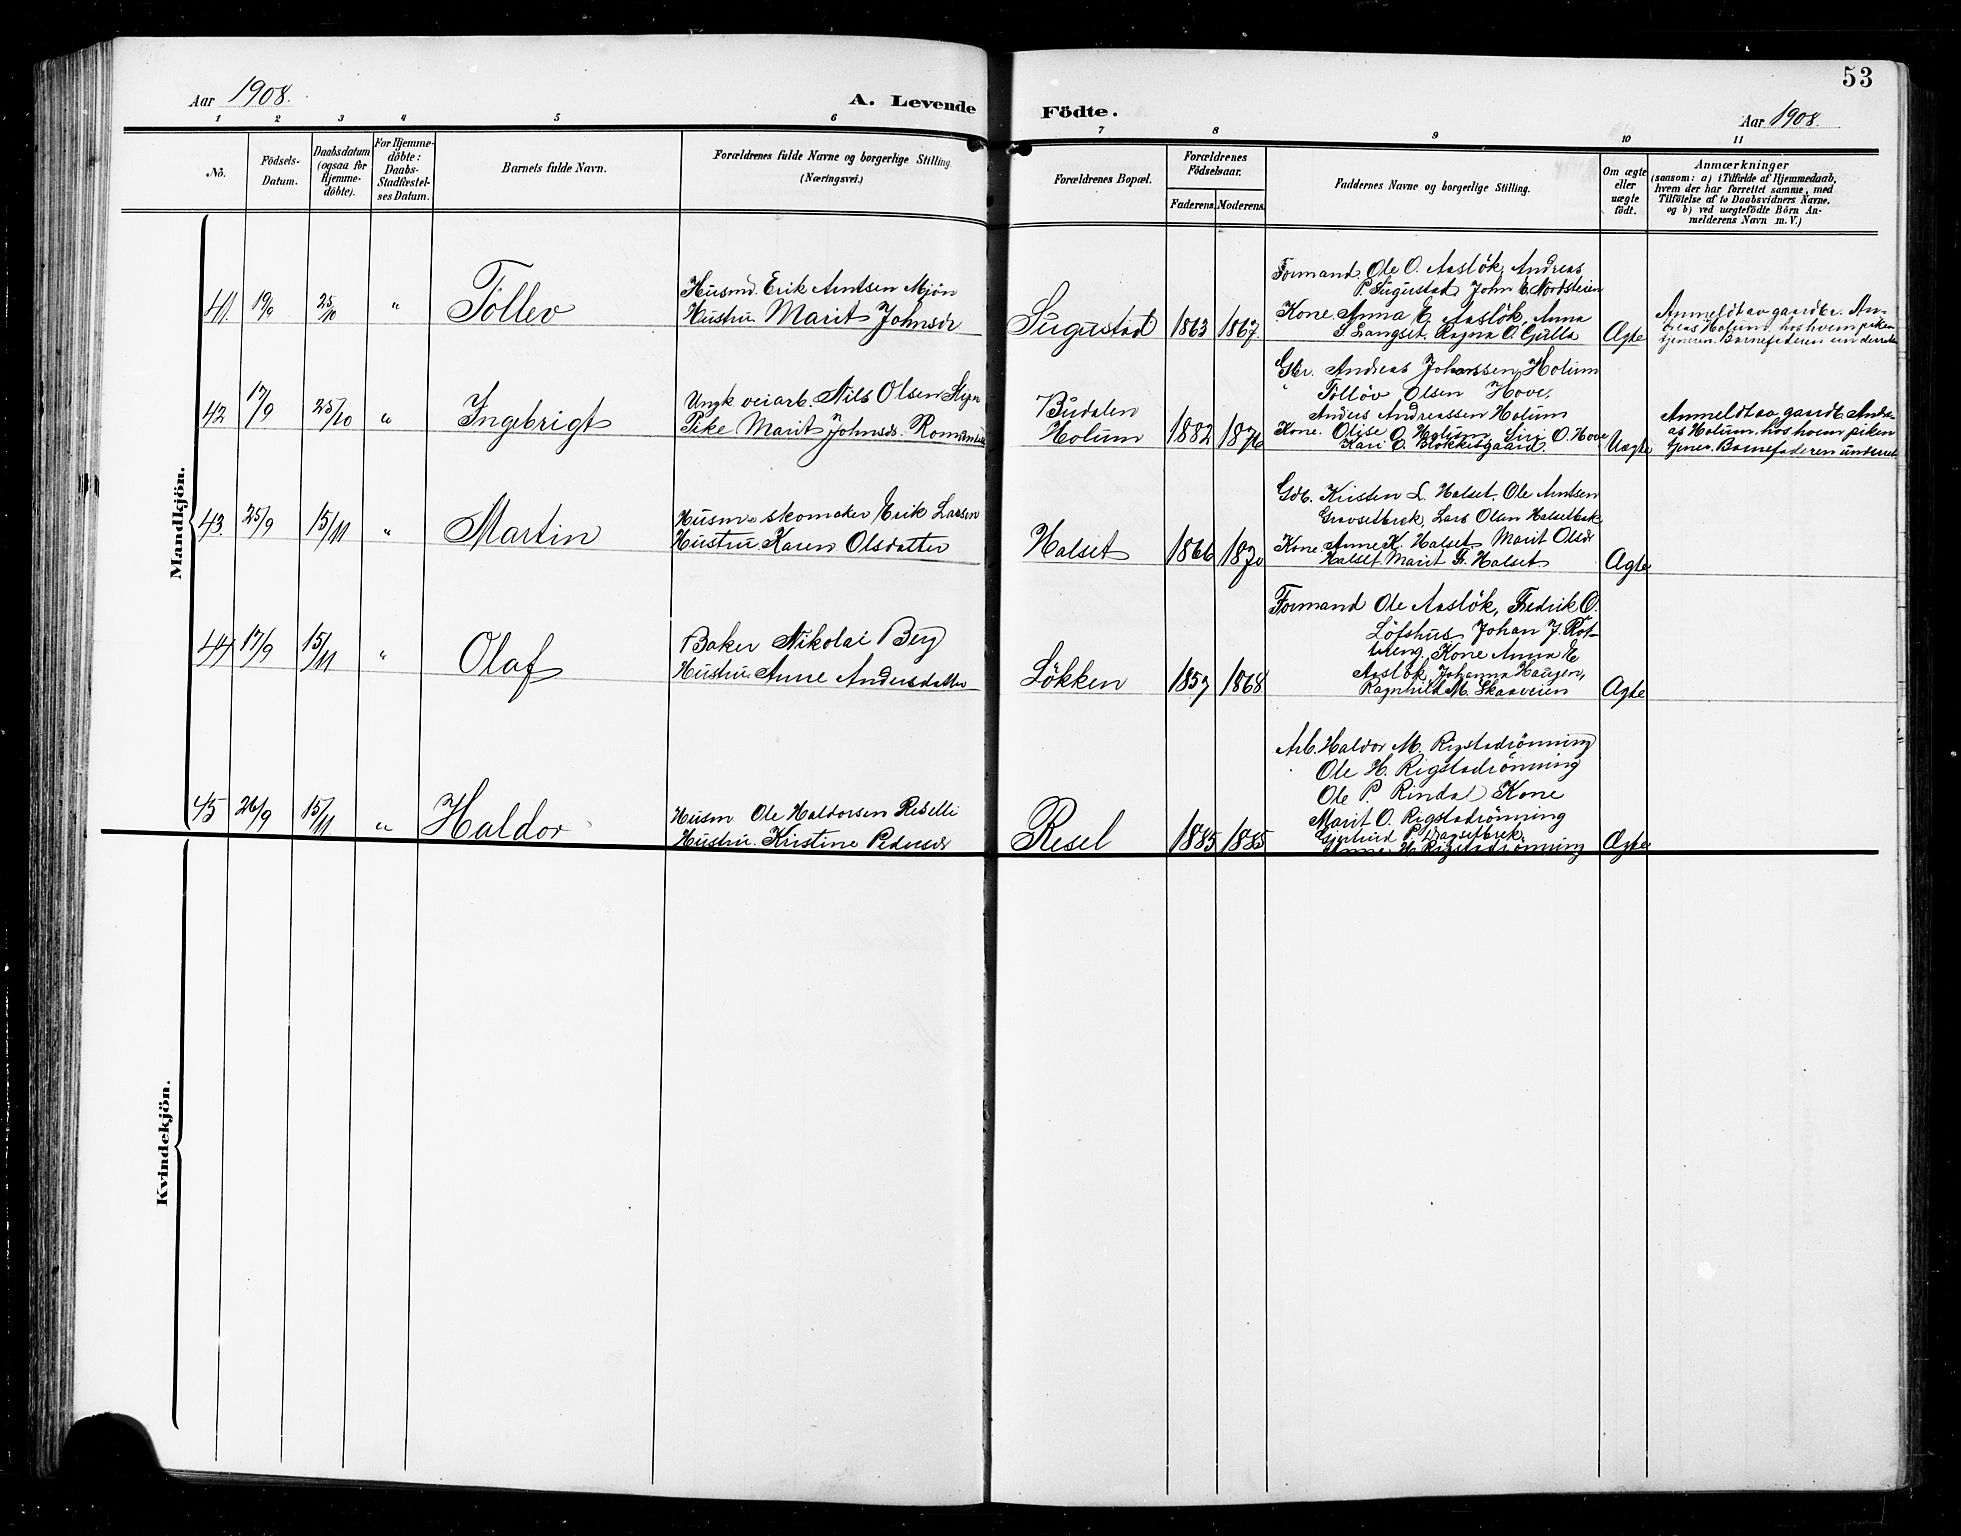 53
Aar 1908.
A. Levende Födte.
Aar 1908.
1 2 3 4 5 6 7 8 9 10 11
No.
Födsels-
Datum.
Daabsdatum
(ogsaa for
Hjemme-
döbte).
For Hjemme-
döbte:
Daabs-
Stadfæstel-
ses Datum.
Barnets fulde Navn.
Forældrenes fulde Navne og borgerlige Stilling.
(Næringsvei.)
Forældrenes Bopæl.
Forældrenes
Födselsaar.
Faderens. Moderens.
Faddernes Navne og borgerlige Stilling.
Om ægte
eller
uægte
födt.
Anmærkninger
(saasom: a) i Tilfælde af Hjemmedaab,
hvem der har forrettet samme, med
Tilföielse af to Daabsvidners Navne,
og b) ved uægtefödte Börn An-
melderens Navn m. V.)
Mandkjön.
41. 19/9 25/10 "
Tollev
Husmd. Erik Arntsen Mjön
Hustru Marit Johnsdr
Sugustad 1863 1867.
Formand Ole O. Aaslök, Andreas
P. Sugustad, John E. Nordsteien
Kone Anna E. Aaslök, Anna
S. Langset, Ragna O. Gulla
Ægte
Anmeldt av gaardbr. An-
dreas Holum, hos hvem piken
tjener. Barnefaderen underrettet
42 17/9 25/10 "
Ingebrigt
Ungk veiarb. Nils Olsen
Pike Marit Johnsdr.
Budalen
Holum 1882 1876
Gbr. Andreas Johanssen Holum
" Tollöv Olsen Hove,
Anders Andreassen Holum
Kone. Olise O. Holum, Siri O. Hove
Kari O. Blokkesgaard.
Uægte
Anmeldt av gaardb. Andre-
as Holum, hos hvem piken
tjener. Barnefaderen underret
43. 25/9 15/11 "
Martin
Husm. skomaker Erik Larsen
Hustru Karen Olsdatter
Halset 1866 1870
Gdb. Kristen L. Halset. Ole Arntsen
Gravsetbrek, Lars Olsen Halsetbak
Kone. Anne K. Halset. Marit Olsdr
Halset. Marit Halset
Ægte
44 17/9 15/11 "
Olaf
Baker Nikolai Berg
Hustru Anne Andersdatter
Lökken 1857 1868
Formand Ole Aaslök, Fredrik O.
Löfshus, Johan J.
Kone Anna E
Aaslök, Johanna Haugen,
Ragnhild M. Skaaveien
Ægte
45 26/9 15/11 "
Haldor
Husm Ole Haldorsen Reselli
Hustru. Kristine Pedersdr
Resel 1885 1885
Arb. Haldor M. Rigstadrönning
Ole H. Rigstadrönning
Ole P. Rindal Kone
Marit O. Rigstadrönning
Gjertrud P. Dragsetbrek.
Anne H. Rigstadrönning
Ægte
Kvindekjön.